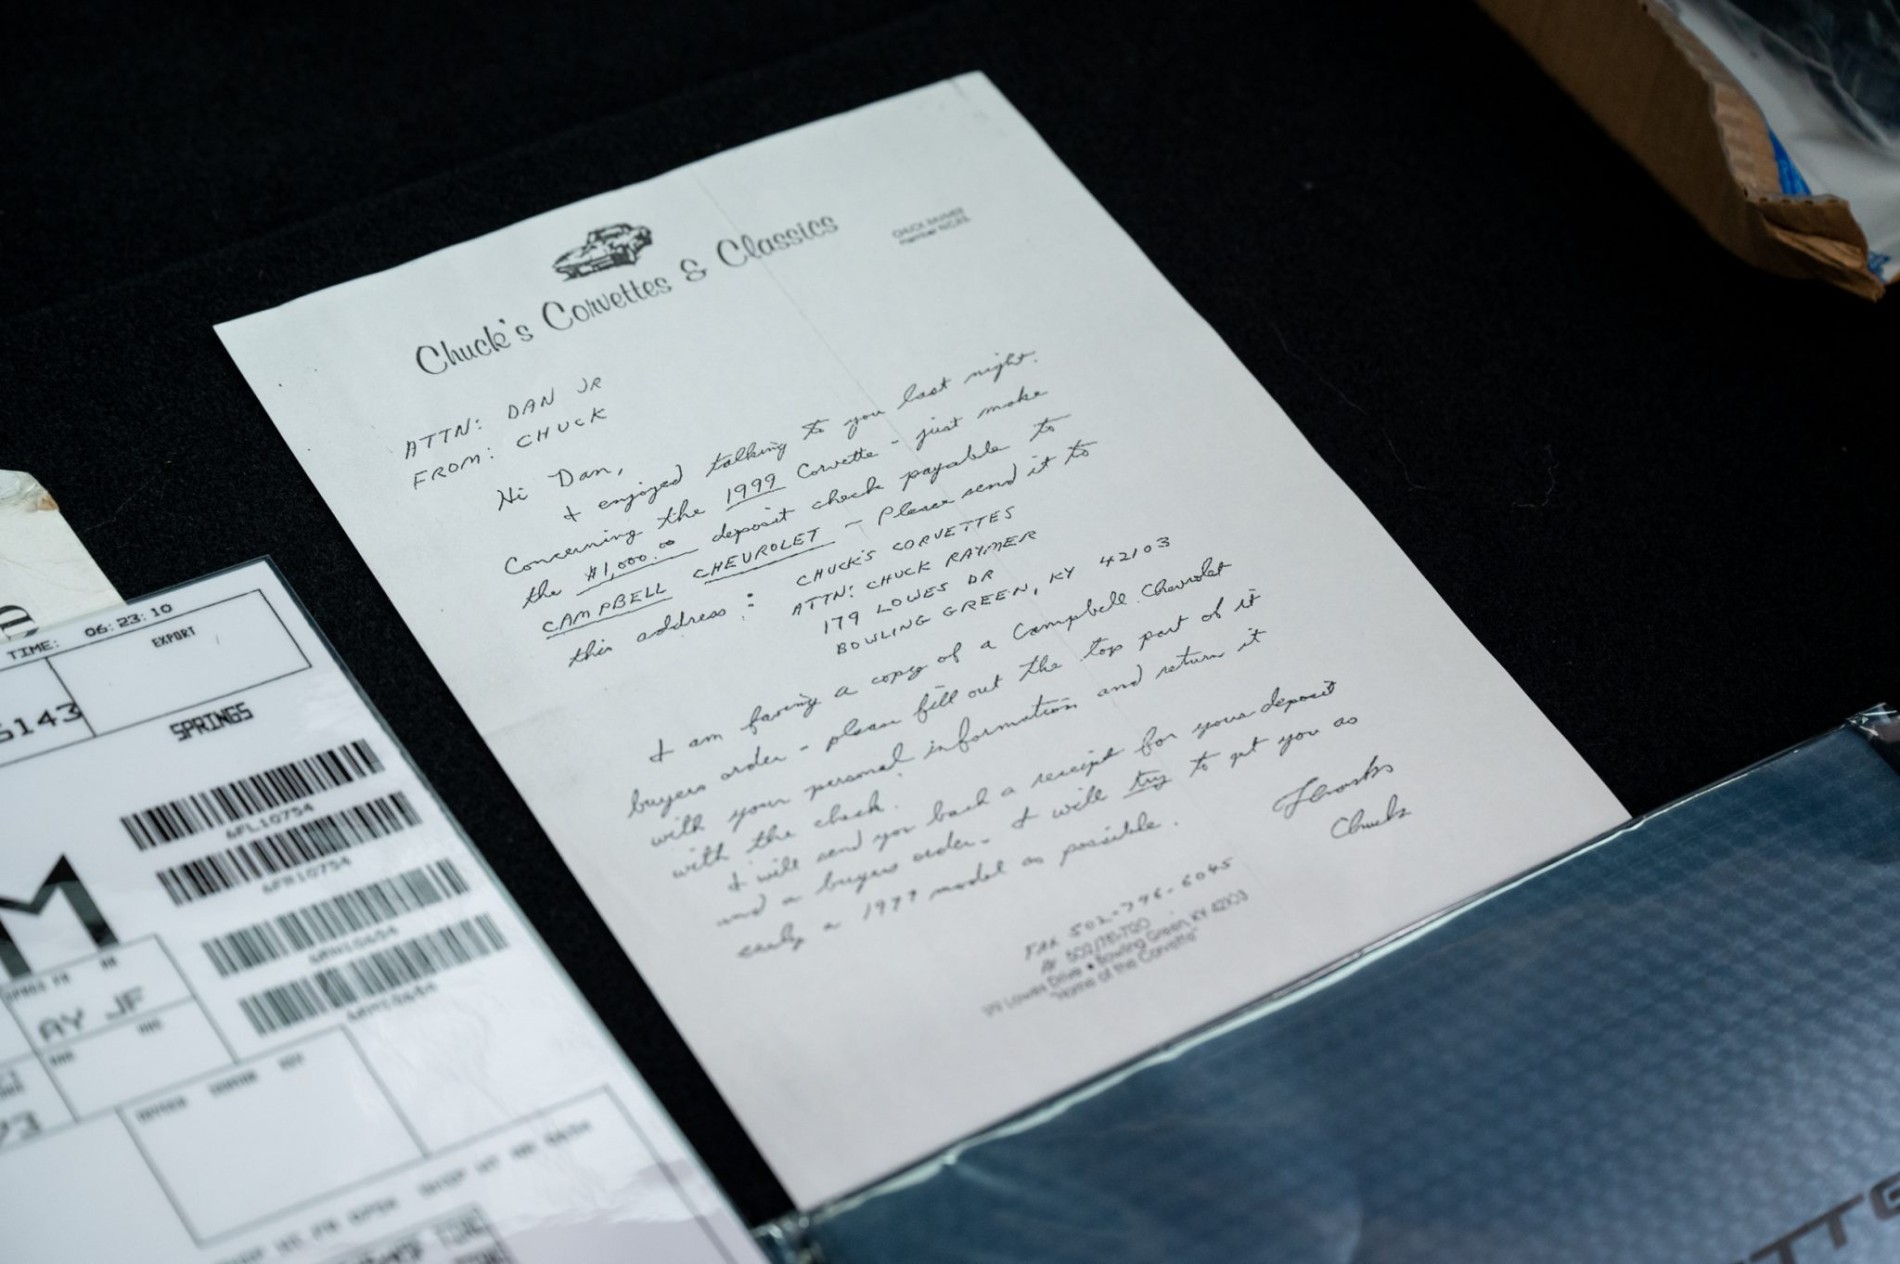 Chuck's Corvettes & Classics
CHUCK RAYMER
member N.C.R.S.
ATTN: DAN JR
FROM: CHUCK
Hi Dan,
I enjoyed talking to you last night.
Concerning the 1999 Corvette - just make
the $1,000.00 deposit check payable to
CAMPBELL CHEVROLET - Please send it to
this address:
CHUCK'S CORVETTES
ATTN: CHUCK RAYMER
179 LOWES DR
BOWLING GREEN, KY 42103
I am faxing a copy of a Campbell Chevrolet
buyers order - please fill out the top part of it
with your personal information and return it
with the check.
I will send you back a receipt for your deposit
and a buyers order. I will try to get you as
early a 1999 model as possible.
Thanks
Chuck
FAX 502-796-6045
179 Lowes Drive • Bowling Green, KY 42103
"Home of the Corvette"
TIME: 06:23:10
EXPORT
6143
SPRINGS
6FL10754
6FR10754
6RN10654
M
AY JF
73